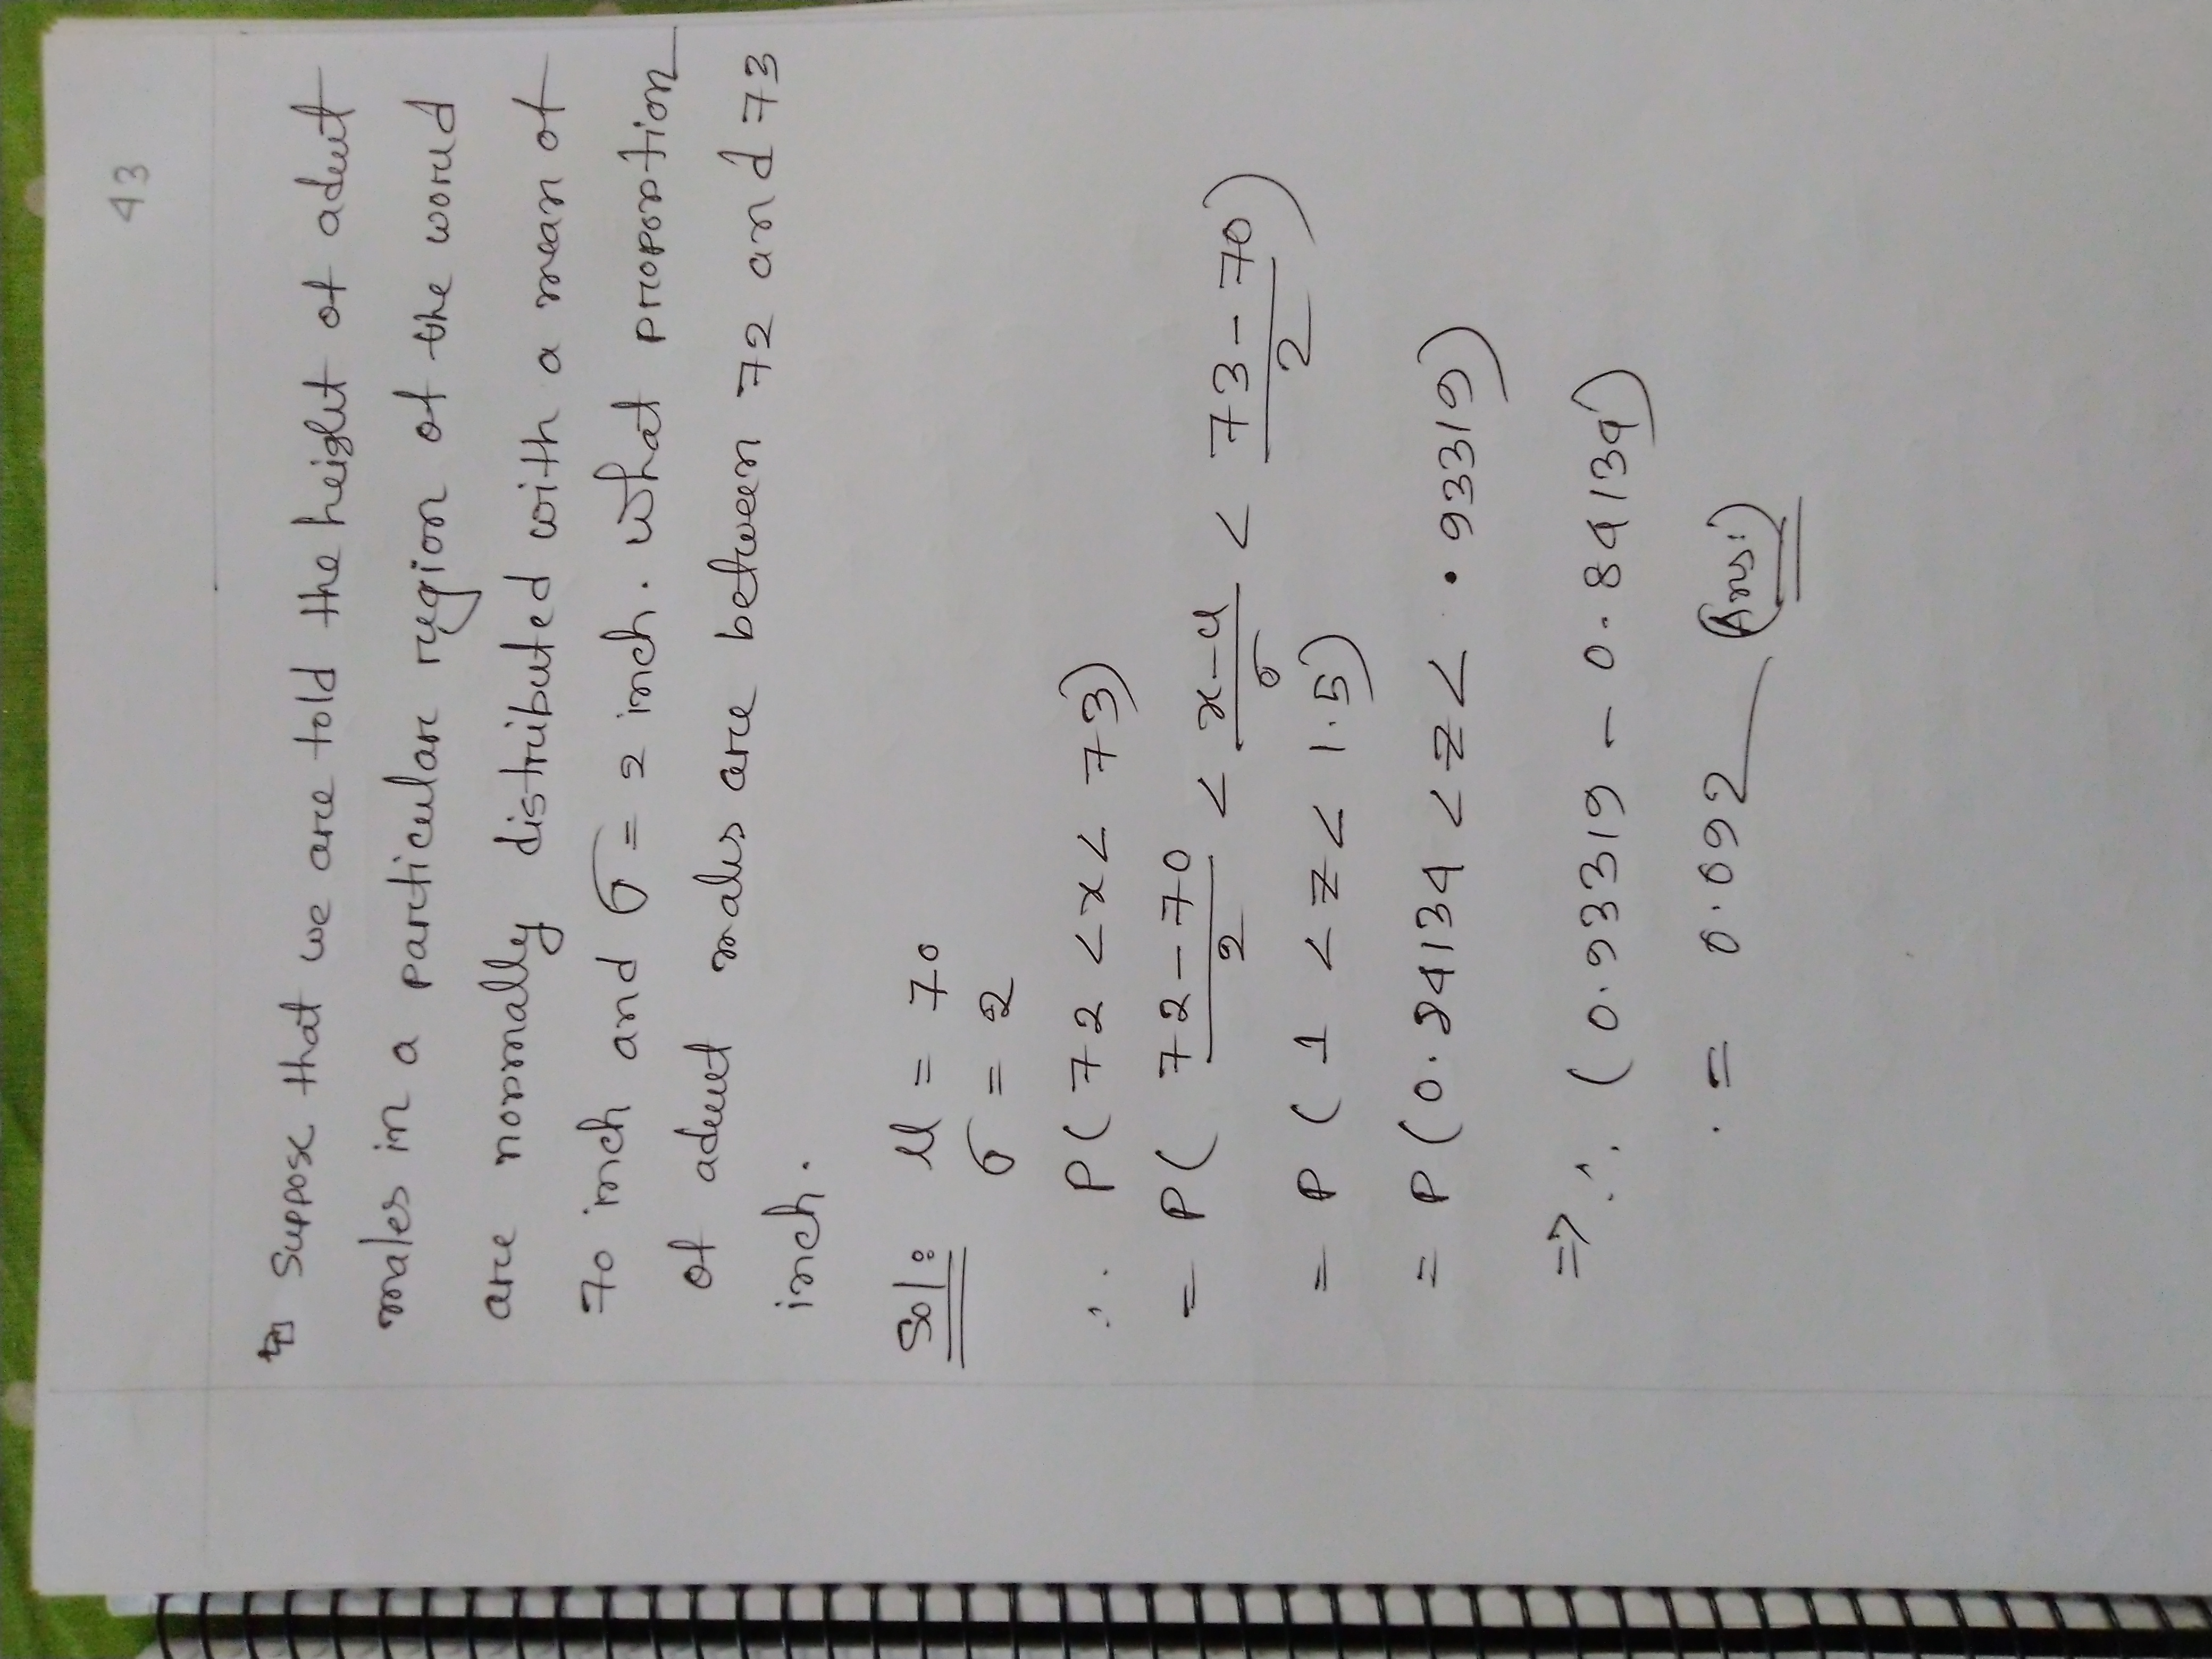 43
Suppose that we are told the height of adult
males in a particular region of the world
are normally distributed with a mean of
70 inch and σ = 2 inch. What proportion
of adult males are between 72 and 73
inch.
Sol: μ = 70
σ = 2
∴ P(72 < x < 73)
= P( (72-70)/2 < (x-μ)/σ < (73-70)/2 )
= P (1 < z < 1.5)
= P (0.84134 < z < .93319)
⇒ ∴ (0.93319 - 0.84134)
. = 0.092 (Ans:)